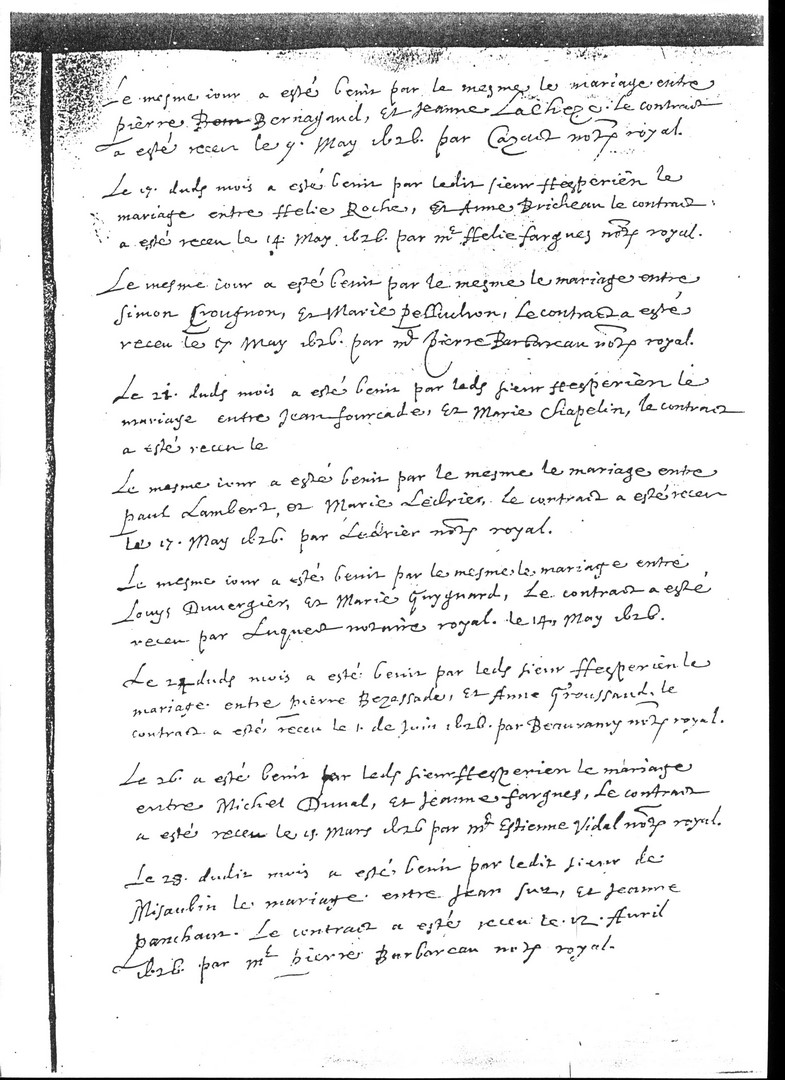 Le mesme iour a esté benit par le mesme le mariage entre
pierre Bernagaud, Et Jeanne Lacheze. Le contract
a esté receu le 9. May 1626. par Cazaut notre royal.
Le 17. duds mois a esté benit par ledit sieur ffesperien le
mariage entre ffelie Roche, Et Anne Bricheau le contract
a esté receu le 14. May 1626. par me ffelie fargues notre royal.
Le mesme iour a esté benit par le mesme le mariage entre
Simon Crougnon, Et Marie pelluchon, Le contract a esté
receu le May 1626. par me pierre Barbareau notre royal.
Le 21. duds mois a esté benit par leds sieur ffesperien le
mariage entre Jean fourcade, Et Marie Chapelin, le contract
a esté receu le
Le mesme iour a esté benit par le mesme le mariage entre
paul Lambert, et Marie Ledrier, le contract a esté receu
le 17. May 1626. par Ledrier notre royal.
Le mesme iour a esté benit par le mesme le mariage entre
Louys Duvergier, Et Marie Guygnard, Le contract a esté
receu par Luquet notaire royal. le 14, May 1626.
Le 24 duds mois a esté benit par leds sieur ffesperien le
mariage entre pierre Bezassade, Et Anne Groussaud, le
contract a esté receu le 1. de Juin 1626. par notre royal.
Le 26. a esté benit par leds sieur ffesperien le mariage
entre Michel Duval, Et Jeanne fargues, Le contract
a esté receu le 15. Mars 1626 par me Estienne Vidal notre royal.
Le 28. dudit mois a esté benit par ledit sieur de
Misaubin le mariage entre Jean suz, Et Jeanne
panchaut. Le contract a esté receu le 12. Auril
1626. par me pierre Barbareau notre royal.